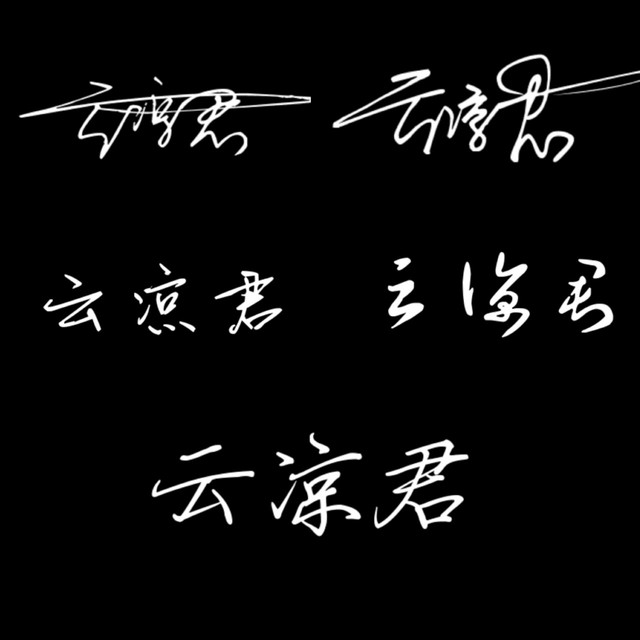 云凉君 云凉君
云凉君 云凉君
云凉君